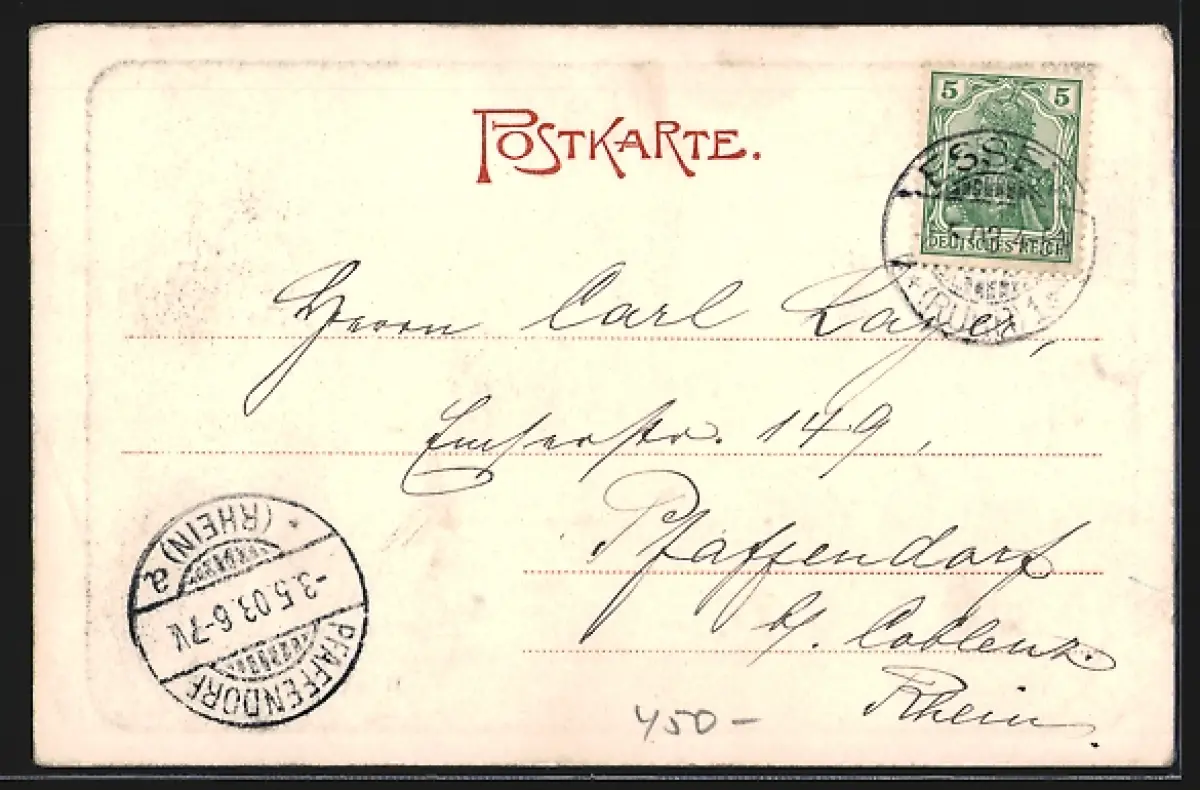 POSTKARTE.
5 5
DEUTSCHES REICH
ESSEN
(RUHR) 1
Herrn Carl Layer,
Emserstr. 149,
Pfaffendorf
b/. Coblenz.
Rhein
* (RHEIN) a
-3.5.03.6-7V.
PFAFFENDORF
450-